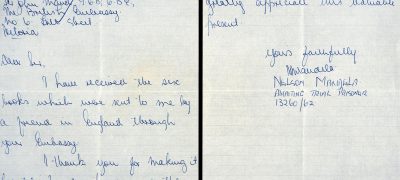 The British Embassy
Dear Sir,
I have received the six
books which were sent to me by
a friend in England through
your Embassy.
I thank you for making it
greatly appreciate this valuable
present.
Yours faithfully
NMandela
NELSON MANDELA
AWAITING TRIAL PRISONER
13260/62